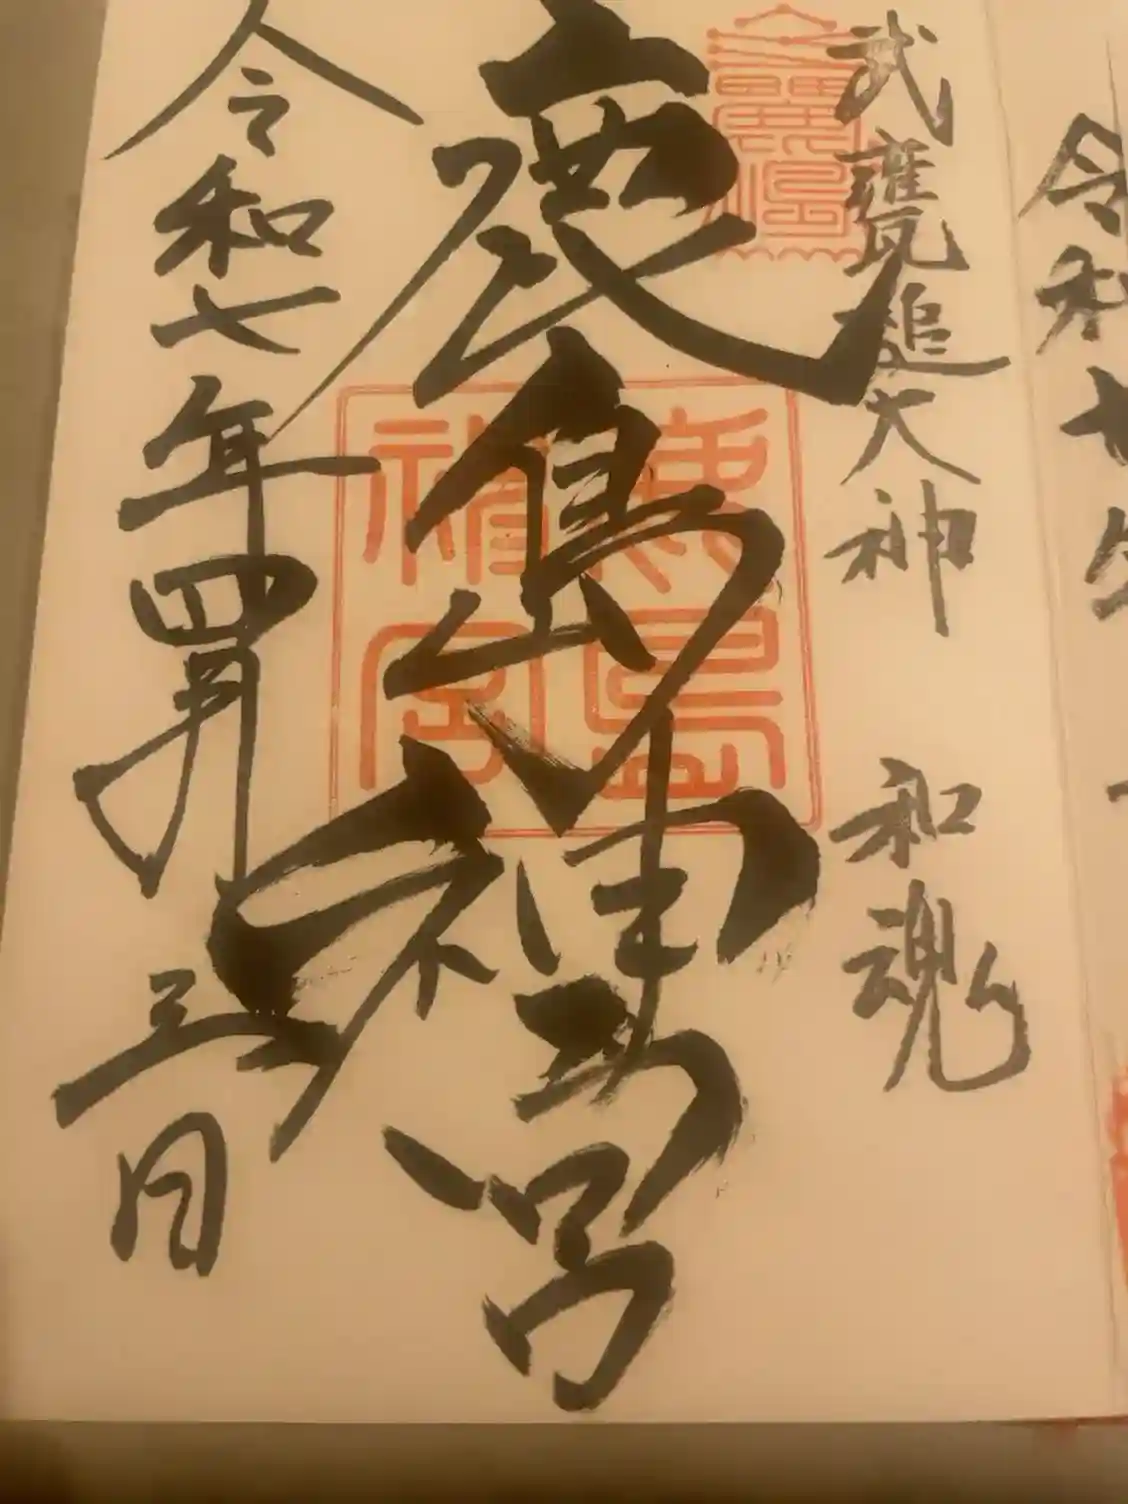 武甕追大神 和魂
鹿島神宮
令和七年四月三日
鹿島
神宮
令和七年